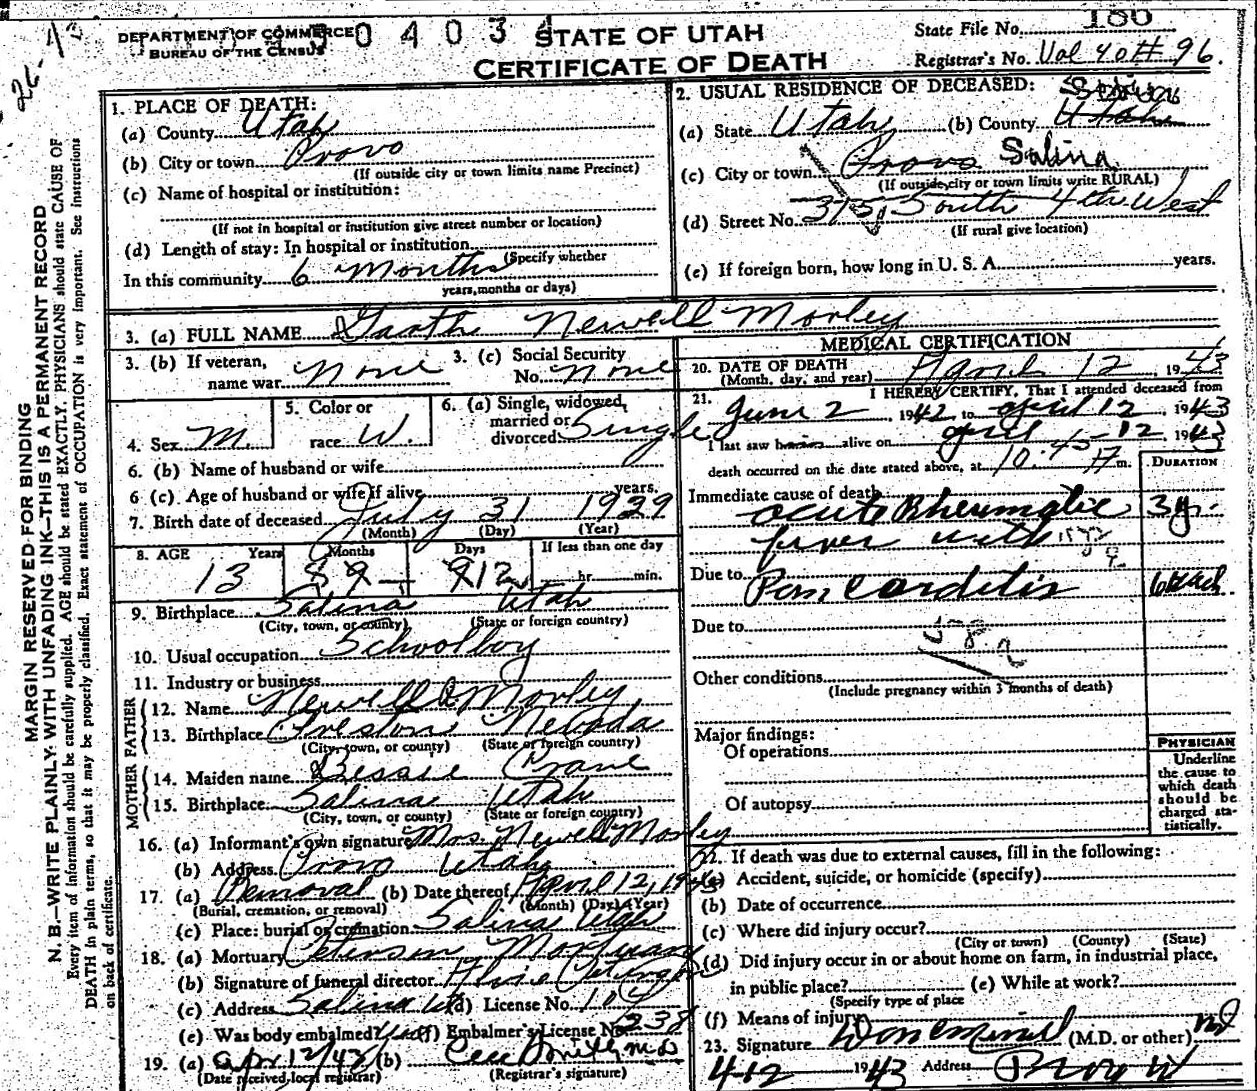 DEPARTMENT OF COMMERCE
BUREAU OF THE CENSUS
0 4 0 3 4
STATE OF UTAH
CERTIFICATE OF DEATH
State File No. 180
Registrar's No. Vol 40 # 96.
MARGIN RESERVED FOR BINDING
N. B.—WRITE PLAINLY WITH UNFADING INK—THIS IS A PERMANENT RECORD
Every item of information should be carefully supplied. AGE should be stated EXACTLY. PHYSICIANS should state CAUSE OF
DEATH in plain terms, so that it may be properly classified. Exact statement of OCCUPATION is very important. See Instructions
on back of certificate.
1. PLACE OF DEATH:
(a) County Utah
(b) City or town Provo
(If outside city or town limits name Precinct)
(c) Name of hospital or institution:
(If not in hospital or institution give street number or location)
(d) Length of stay: In hospital or institution
(Specify whether
In this community 6 months
years, months or days)
2. USUAL RESIDENCE OF DECEASED: Sevier
(a) State Utah (b) County Utah
(c) City or town Provo Salina
(If outside city or town limits write RURAL)
(d) Street No. 315 South 4th West
(If rural give location)
(e) If foreign born, how long in U. S. A. years.
3. (a) FULL NAME Garth Newell Morley
3. (b) If veteran, name war None
3. (c) Social Security No. None
4. Sex M.
5. Color or race W.
6. (a) Single, widowed, married or divorced: Single
6. (b) Name of husband or wife
6 (c) Age of husband or wife if alive years.
7. Birth date of deceased July 31 1929
(Month) (Day) (Year)
8. AGE Years Months Days If less than one day
13 8 9 9 12 hr. min.
9. Birthplace Salina Utah
(City, town, or county) (State or foreign country)
10. Usual occupation Schoolboy
11. Industry or business
FATHER
12. Name Newell Morley
13. Birthplace Preston Nevada
(City, town, or county) (State or foreign country)
MOTHER
14. Maiden name Bessie Crane
15. Birthplace Salina Utah
(City, town, or county) (State or foreign country)
16. (a) Informant's own signature Mrs. Newell Morley
(b) Address Provo Utah
17. (a) Removal (b) Date thereof April 12, 1943
(Burial, cremation, or removal) (Month) (Day) (Year)
(c) Place: burial or cremation Salina Utah
18. (a) Mortuary Peterson Mortuary
(b) Signature of funeral director
(c) Address Salina Ut (d) License No. 104
(e) Was body embalmed? Yes (f) Embalmer's License No. 238
19. (a) Apr 12/43 (b)
(Date received local registrar) (Registrar's signature)
MEDICAL CERTIFICATION
20. DATE OF DEATH
(Month, day, and year) April 12, 1943
21. I HEREBY CERTIFY, That I attended deceased from
June 2 1942 to April 12, 1943
I last saw him alive on April 12, 1943
death occurred on the date stated above, at 10:45 A m.
DURATION
Immediate cause of death
acute Rheumatic 3 yr.
fever with
Due to Pancarditis
Due to
58.2
Other conditions
(Include pregnancy within 3 months of death)
Major findings:
Of operations
Of autopsy
PHYSICIAN
Underline
the cause to
which death
should be
charged sta-
tistically.
22. If death was due to external causes, fill in the following:
(a) Accident, suicide, or homicide (specify)
(b) Date of occurrence
(c) Where did injury occur?
(City or town) (County) (State)
(d) Did injury occur in or about home on farm, in industrial place,
in public place? (e) While at work?
(Specify type of place
(f) Means of injury
23. Signature (M.D. or other) MD
4-12 1943 Address Provo Ut